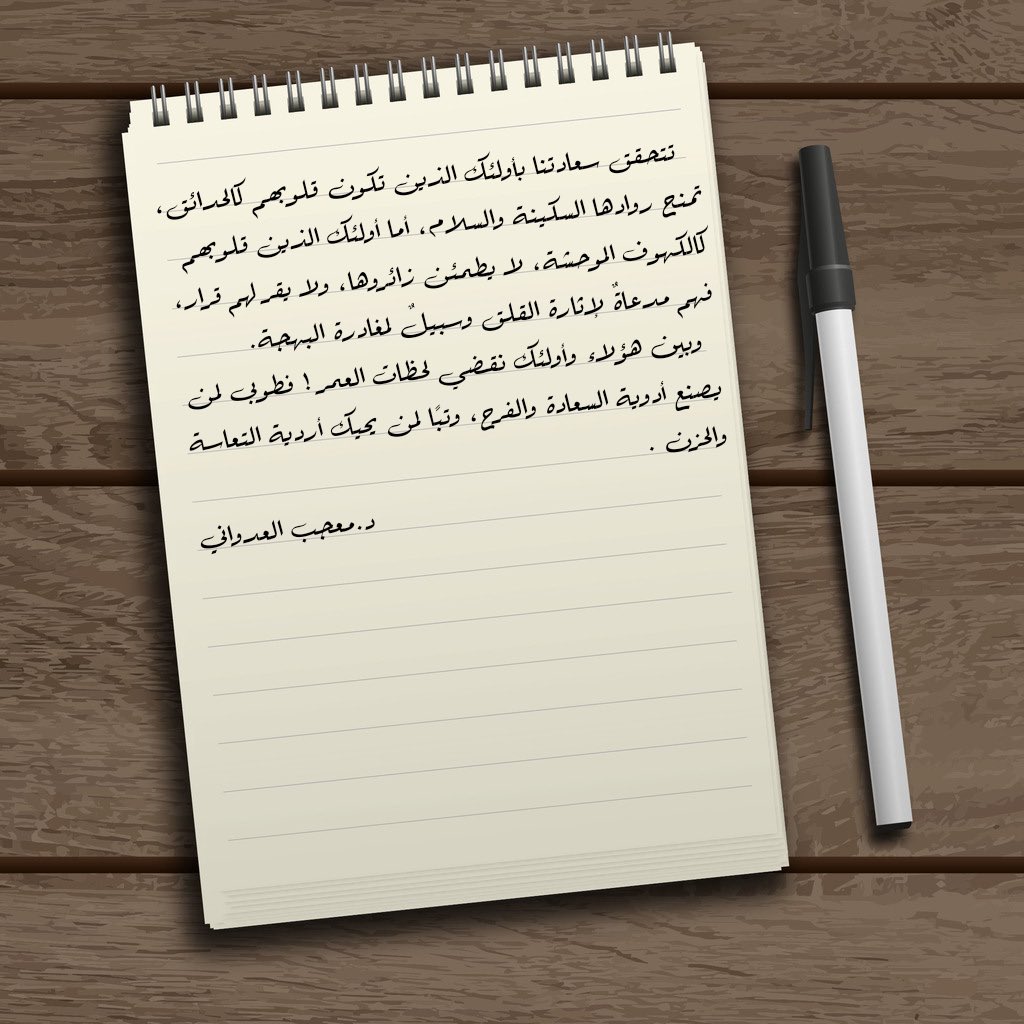 تتحقق سعادتنا بأولئك الذين تكون قلوبهم كالحدائق،
تمنح روادها السكينة والسلام، أما أولئك الذين قلوبهم
كالكهوف الموحشة، لا يطمئن زائروها، ولا يقر لهم قرار،
فهم مدعاةٌ لإثارة القلق وسبيلٌ لمغادرة البهجة.
وبين هؤلاء وأولئك نقضي لحظات العمر! فطوبى لمن
يصنع أدوية السعادة والفرح، وتبًا لمن يحيك أردية التعاسة
والحزن .
د.معجب العدواني